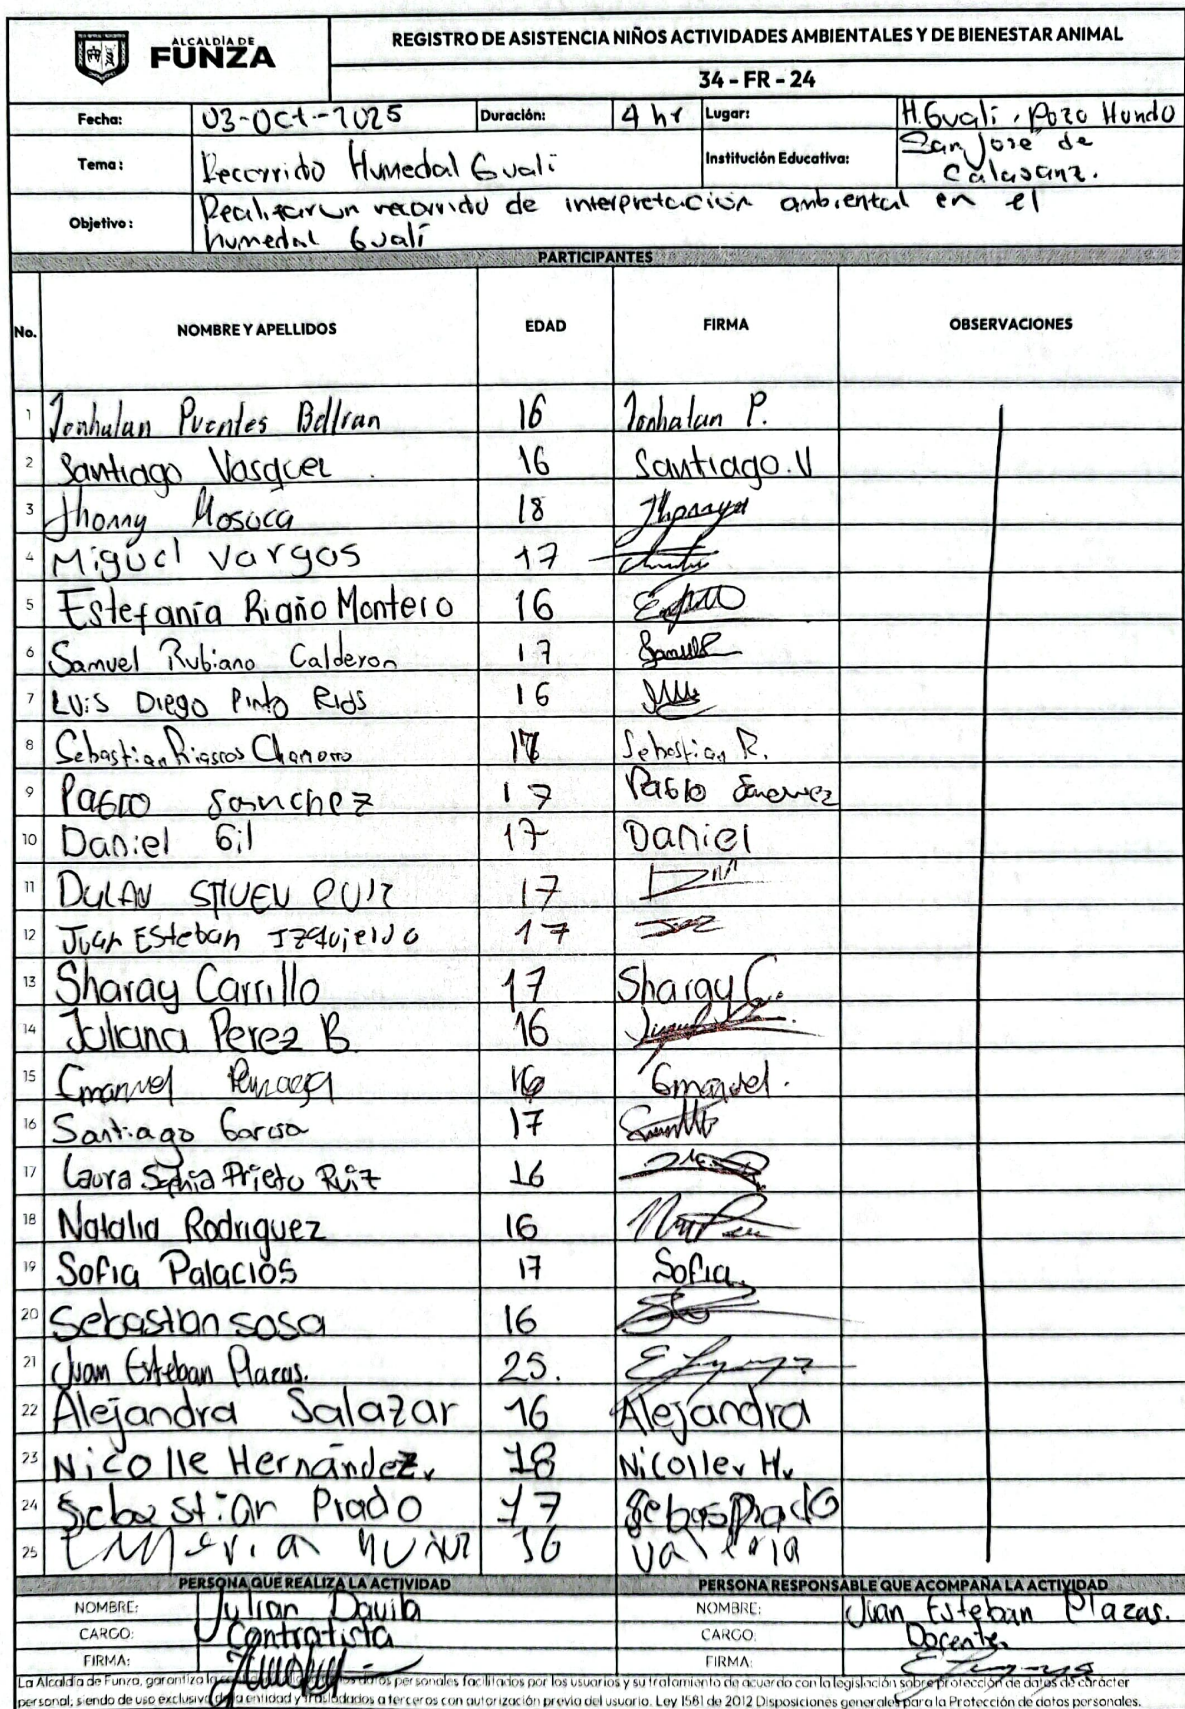 ALCALDÍA DE
FUNZA
REGISTRO DE ASISTENCIA NIÑOS ACTIVIDADES AMBIENTALES Y DE BIENESTAR ANIMAL
34 - FR - 24
Fecha: 03-Oct-2025 Duración: 4 hr Lugar: H. Gualí, Pozo Hundo
Tema: Recorrido Humedal Gualí Institución Educativa: San Jose de Calasanz.
Objetivo: Realizar un recorrido de interpretación ambiental en el
humedal Gualí
PARTICIPANTES
No. NOMBRE Y APELLIDOS EDAD FIRMA OBSERVACIONES
1 Jonhatan Puentes Beltran 16 Jonhatan P.
2 Santiago Vasquez 16 Santiago. V
3 Jhonny Mosuca 18
4 Miguel Vargas 17
5 Estefanía Riaño Montero 16
6 Samuel Rubiano Calderon 17
7 Luis Diego Pinto Rios 16
8 Sebastian Riascos Chamorro Sebastian R.
9 Pablo Sainchez 17 Pablo Sanchez
10 Daniel Gil 17 Daniel
11 DYLAN STIVEN RUIZ 17
12 Juan Esteban Izquierdo 17
13 Sharay Carrillo 17 Sharay C.
14 Juliana Perez B. 16
15 Emanuel 16 Emanuel.
16 Santiago Garcia 17
17 Laura Sofia Prieto Ruiz 16
18 Natalia Rodriguez 16
19 Sofia Palacios 17 Sofia
20 Sebastian sosa 16
21 Juan Esteban Plazas. 25.
22 Alejandra Salazar 16 Alejandra
23 Nicolle Hernández. 18 Nicolle H.
24 Sebastián Prado 17 Sebas Prado
25 16 Valeria
PERSONA QUE REALIZA LA ACTIVIDAD PERSONA RESPONSABLE QUE ACOMPAÑA LA ACTIVIDAD
NOMBRE: Julian Davila NOMBRE: Juan Esteban Plazas.
CARGO: Contratista CARGO: Docente
FIRMA: FIRMA:
La Alcaldía de Funza, garantiza la los datos personales facilitados por los usuarios y su tratamiento de acuerdo con la legislación sobre protección de datos de carácter
personal; siendo de uso exclusivo de la entidad y trasladados a terceros con autorización previa del usuario. Ley 1581 de 2012 Disposiciones generales para la Protección de datos personales.